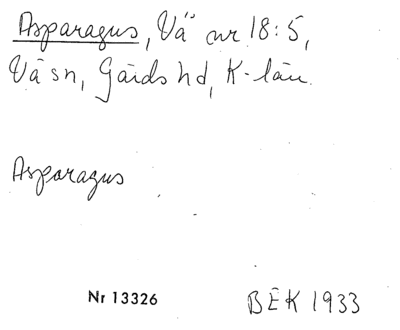 Asparagus, Vä nr 18:5,
Vä sn, Gärds hd, K-län.
Asparagus
Nr 13326
BEK 1933